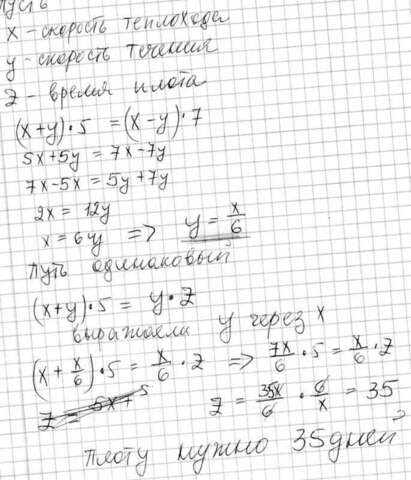 Пусть
x - скорость теплохода
y - скорость течения
z - время плота
(x+y)·5 = (x-y)·7
5x+5y = 7x-7y
7x-5x = 5y+7y
2x = 12y
x = 6y => y = x/6
Путь одинаковый
(x+y)·5 = y·z
выражаем y через x
(x + x/6)·5 = x/6 · z => 7x/6 · 5 = x/6 · z
z = 35x/6 · 6/x = 35
Плоту нужно 35 дней